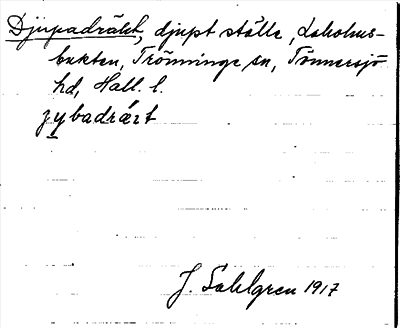 Djupadräkt, djupt ställe, Laholms-
bukten, Trönninge sn, Tönnersjö
hd, Hall. l.
jybadrä̀t
J. Sahlgren 1917